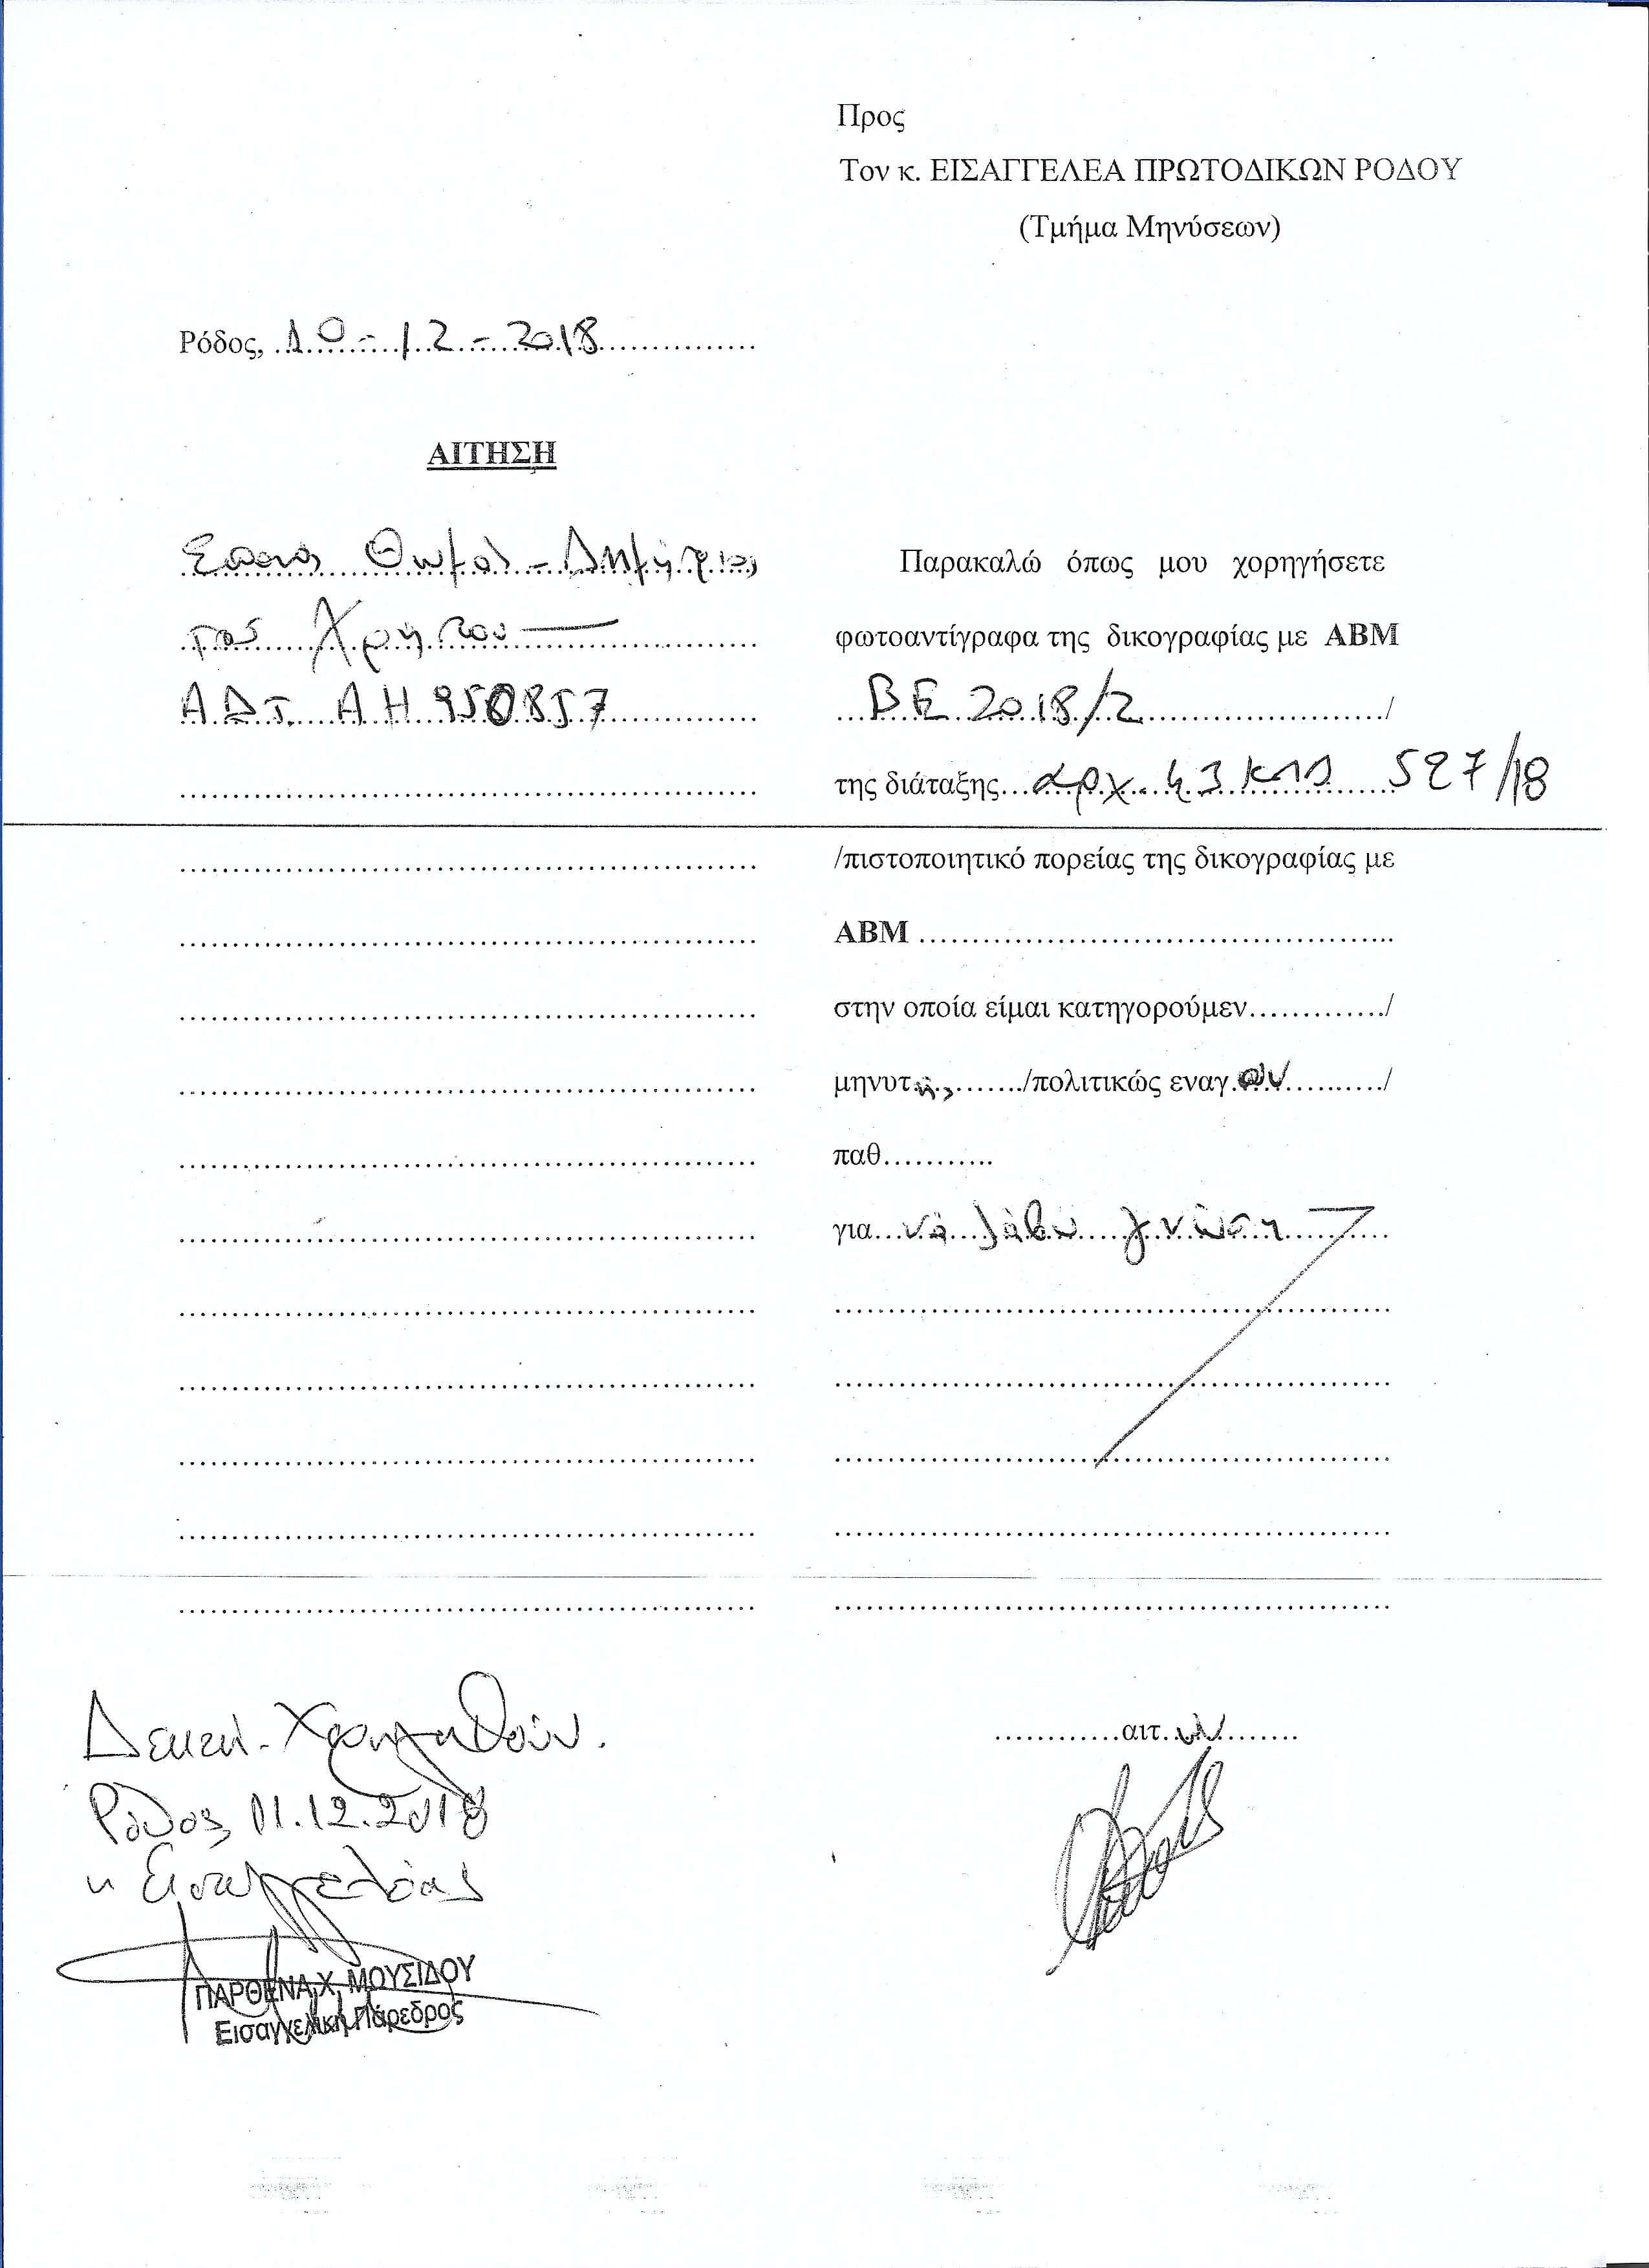 Προς
Τον κ. ΕΙΣΑΓΓΕΛΕΑ ΠΡΩΤΟΔΙΚΩΝ ΡΟΔΟΥ
(Τμήμα Μηνύσεων)
Ρόδος, 10-12-2018
ΑΙΤΗΣΗ
Θωμάς-Δημήτριος
του Χρήστου
Α.Δ.Τ. ΑΗ 950857
Παρακαλώ όπως μου χορηγήσετε
φωτοαντίγραφα της δικογραφίας με ΑΒΜ
ΒΕ 2018/2 /
της διάταξης αρχ. 43 ΚΠΔ 527/18
/πιστοποιητικό πορείας της δικογραφίας με
ΑΒΜ
στην οποία είμαι κατηγορούμεν............./
μηνυτής/πολιτικώς εναγων/
παθ...........
για να λάβω γνώση
αιτ.ων
Χορηγηθούν.
Ρόδος 11.12.2018
η Εισαγγελέας
ΠΑΡΘΕΝΑ Χ. ΜΟΥΣΙΔΟΥ
Εισαγγελική Πάρεδρος